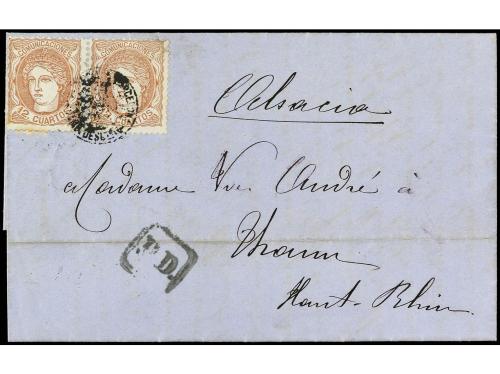 COMUNICACIONES COMUNICACIONES
12 CUARTOS CUARTOS
Alsacia
a Madame Vve André à
Thann
P.D.
Haut-Rhin